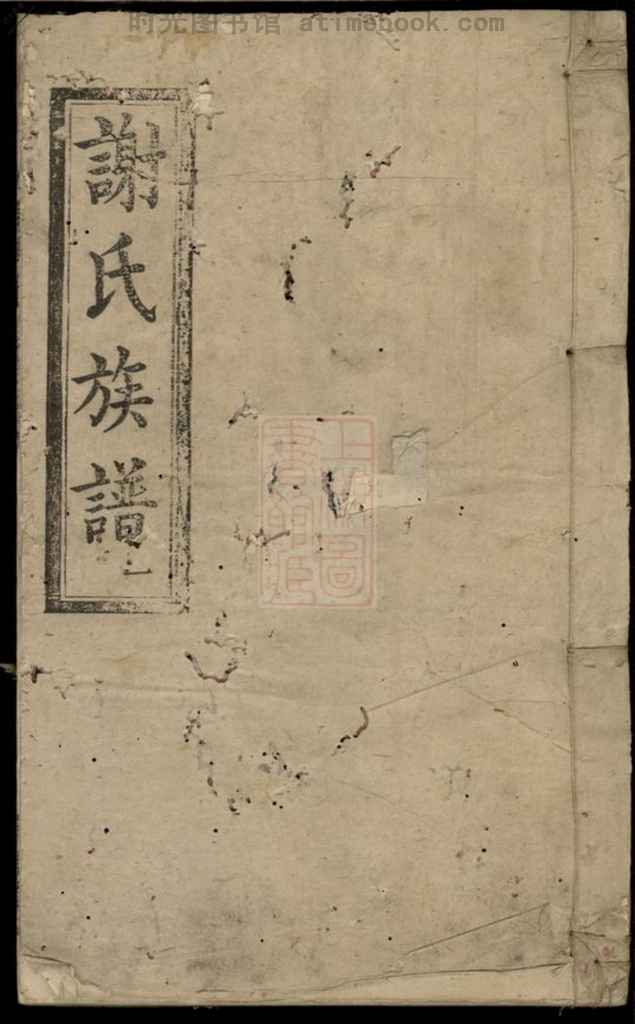 时光图书馆 atimebook.com
謝氏族譜
上海圖書館藏